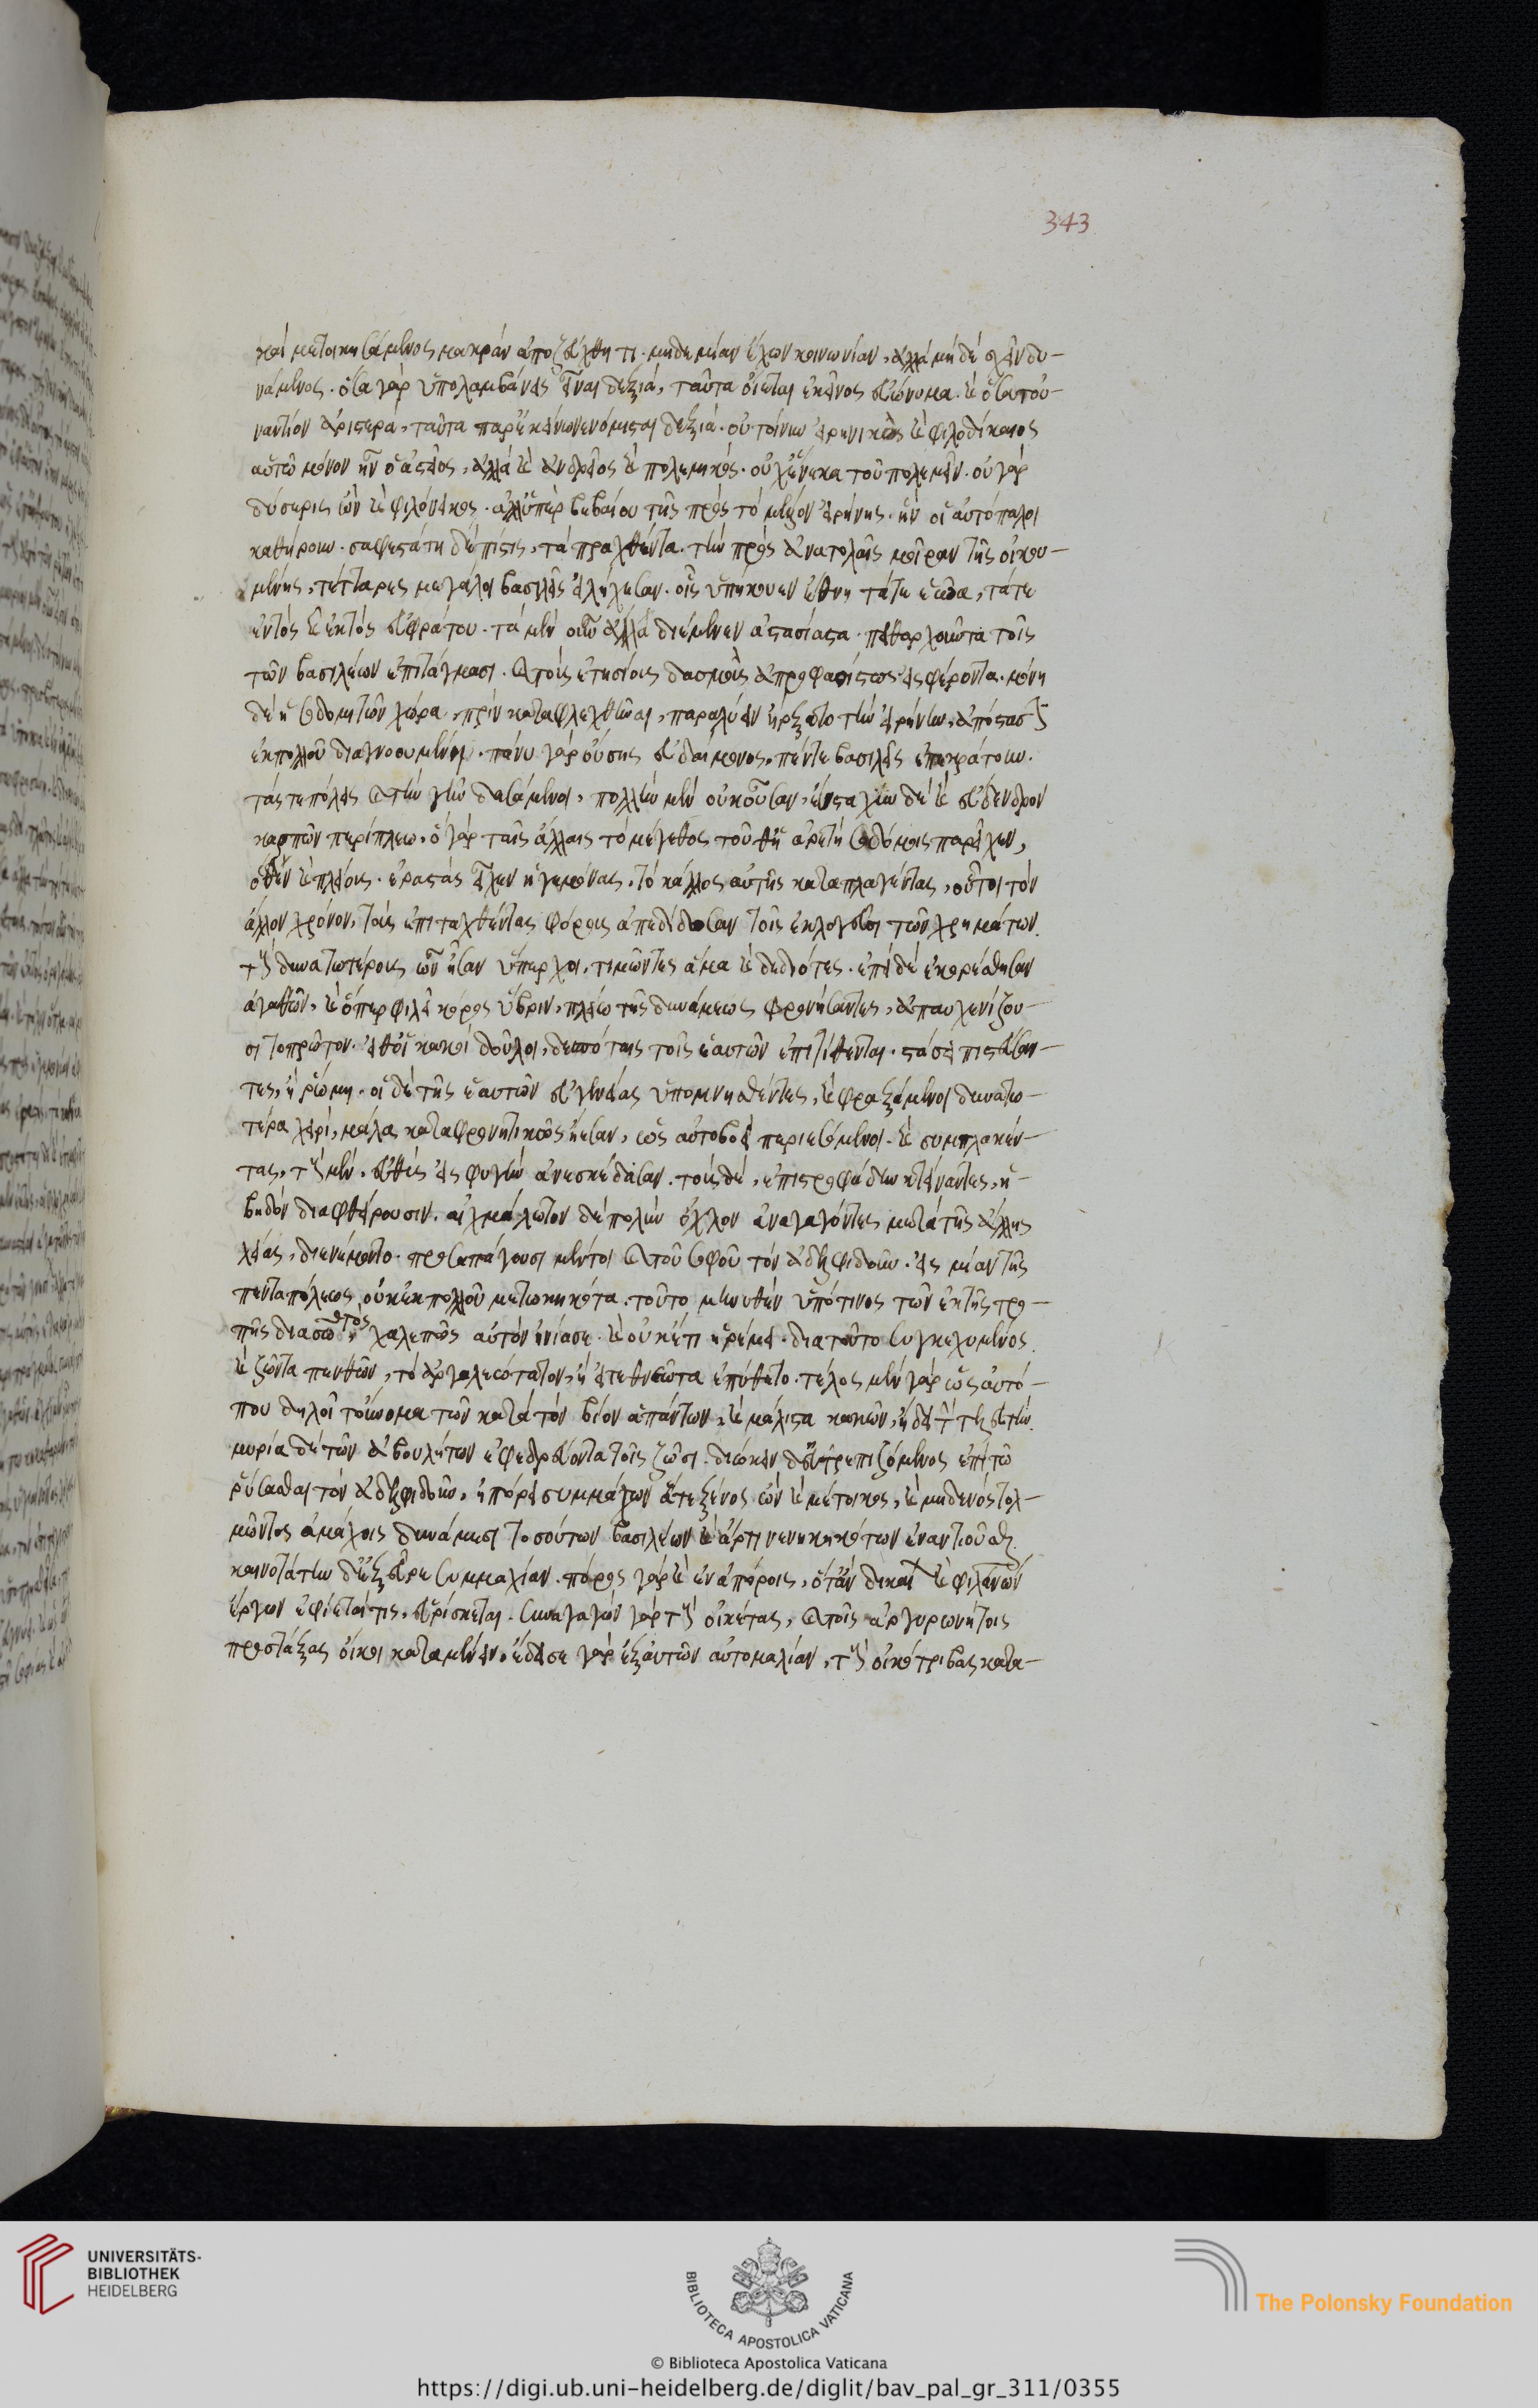 καὶ μετοικησάμενος μακρὰν ἀποζεύχθητι. μηδεμίαν ἔχων κοινωνίαν, ἀλλὰ μὴ δὲ σχεῖν δυ-
νάμενος. ὅσα γὰρ ὑπολαμβάνεις εἶναι δεξιά, ταῦτα οἴεται ἐκεῖνος εὐώνυμα. καὶ ὅσα τοὐ-
ναντίον ἀριστερὰ, ταῦτα παρ' ἐκείνω νενόμισται δεξιά. οὐ τοίνυν εἰρηνικὸς καὶ φιλοδίκαιος
αὐτὸ μόνον ἦν ὁ ἀστεῖος, ἀλλὰ καὶ ἀνδρεῖος καὶ πολεμικός. οὐχ ἕνεκα τοῦ πολεμεῖν. οὐ γὰρ
δύσερις ὢν καὶ φιλόνεικος. ἀλλ' ὑπὲρ βεβαίου τῆς πρὸς τὸ μέλλον εἰρήνης. ἣν οἱ ἀντίπαλοι
καθήρουν. σαφεστάτη δὲ πίστις, τὰ πραχθέντα. τὴν πρὸς ἀνατολὰς μοῖραν τῆς οἰκου-
μένης, τέτταρες μεγάλοι βασιλεῖς εἰλήχεσαν. οἷς ὑπήκουεν ἔθνη τά τε ἑῶα, τά τε
ἐντὸς καὶ ἐκτὸς εὐφράτου. τὰ μὲν οὖν ἄλλα διέμενεν ἀστασίαστα. πειθαρχοῦντα τοῖς
τῶν βασιλέων ἐπιτάγμασι. καὶ τοὺς ἐτησίους δασμοὺς ἀπροφασίστως εἰσφέροντα. μόνη
δὲ ἡ σοδομιτῶν χώρα, πρὶν καταφλεχθῆναι, παραλύειν ἤρξατο τὴν εἰρήνην, ἀπόστασιν
ἐκ πολλοῦ διανοουμένη. πάνυ γὰρ οὔσης εὐδαίμονος, πέντε βασιλεῖς ἐπεκράτουν.
τάς τε πόλεις καὶ τὴν γῆν δασάμενοι, πολλὴν μὲν οὐκ οὖσαν, εὔσταχυν δὲ καὶ εὔδενδρον
καρπῶν περίπλεω. ὃ γὰρ ταῖς ἄλλαις τὸ μέγεθος τοῦθ' ἡ ἀρετὴ σοδόμοις παρέχεν,
ὅθεν καὶ πλείους. ἐραστὰς εἶχεν ἡγεμόνας, τὸ κάλλος αὐτῆς καταπλαγέντας, οὗτοι τὸν
ἄλλον χρόνον, τοὺς ἐπιταχθέντας φόρους ἀπεδίδοσαν τοῖς ἐκλογεῦσι τῶν χρημάτων.
τοὺς δυνατωτέρους ὧν ἦσαν ὕπαρχοι, τιμῶντες ἅμα καὶ δεδιότες. ἐπεὶ δὲ ἐκορέσθησαν
ἀγαθῶν, καὶ ὅπερ φιλεῖ κόρος ὕβριν, πλέω τῆς δυνάμεως φρονήσαντες, ἀπαυχενίζου-
σι τὸ πρῶτον. εἶθ' οἷα κακοὶ δοῦλοι, δεσπόταις τοῖς ἑαυτῶν ἐπιτίθενται. στάσει πιστεύσαν-
τες, ἢ ῥώμη. οἱ δὲ τῆς ἑαυτῶν εὐγενείας ὑπομνησθέντες, καὶ φραξάμενοι δυνατω-
τέρα χειρὶ, μάλα καταφρονητικῶς ἤεσαν, ὡς αὐτοβοεὶ περιεσόμενοι. καὶ συμπλακέν-
τας, τοὺς μὲν. εὐθὺς εἰς φυγὴν ἀνεσκέδασαν. τοὺς δὲ, ἐπιστροφάδην κτείναντες, ἡ-
βηδὸν διαφθείρουσιν. αἰχμάλωτον δὲ πολὺν ὄχλον ἀναγαγόντες μετὰ τῆς ἄλλης
λείας, διενέμοντο. προσαπάγουσι μέντοι καὶ τοῦ σοφοῦ τὸν ἀδελφιδοῦν. εἰς μίαν τῆς
πενταπόλεως οὐκ ἐκ πολλοῦ μετωκηκότα. τοῦτο μηνυθὲν ὑπό τινος τῶν ἐκ τῆς τρο-
πῆς διασωθέντος χαλεπῶς αὐτὸν ἠνίασε. καὶ οὐκέτι ἠρέμει. διὰ τοῦτο συγκεχυμένος.
καὶ ζῶντα πενθῶν, τὸ ἀργαλεώτατον, ἢ εἰ τεθνεῶτα ἐπύθετο. τέλος μὲν γὰρ ὡς αὐτό-
που δηλοῖ τοὔνομα τῶν κατὰ τὸν βίον ἁπάντων, καὶ μάλιστα κακῶν, ἤδει τὴν τελευτήν.
μυρία δὲ τῶν ἀβουλήτων ἐφεδρεύοντα τοῖς ζῶσι. διώκειν δ' εὐτρεπιζόμενος ἐπὶ τῶ
ῥύσασθαι τὸν ἀδελφιδοῦν, ἠπόρει συμμάχων ἅτε ξένος ὢν καὶ μέτοικος, καὶ μηδενὸς τολ-
μῶντος ἀμάχοις δυνάμεσι τοσούτων βασιλέων καὶ ἄρτι νενικηκότων ἐναντιοῦσθαι.
καινοτάτην δ' ἐξεῦρε συμμαχίαν. πόρος γὰρ καὶ ἐν ἀπόροις, ὅταν δικαίων καὶ φιλανθρώπων
ἔργων ἐφίεταί τις, εὑρίσκεται. συναγαγὼν γὰρ τοὺς οἰκέτας, καὶ τοῖς ἀργυρωνήτοις
προστάξας οἴκοι καταμένειν, ἔδεισε γὰρ ἐξ αὐτῶν αὐτομολίαν, τοὺς οἰκότριβας κατα-
343
UNIVERSITÄTS-
BIBLIOTHEK
HEIDELBERG
BIBLIOTECA APOSTOLICA VATICANA
The Polonsky Foundation
© Biblioteca Apostolica Vaticana
https://digi.ub.uni-heidelberg.de/diglit/bav_pal_gr_311/0355